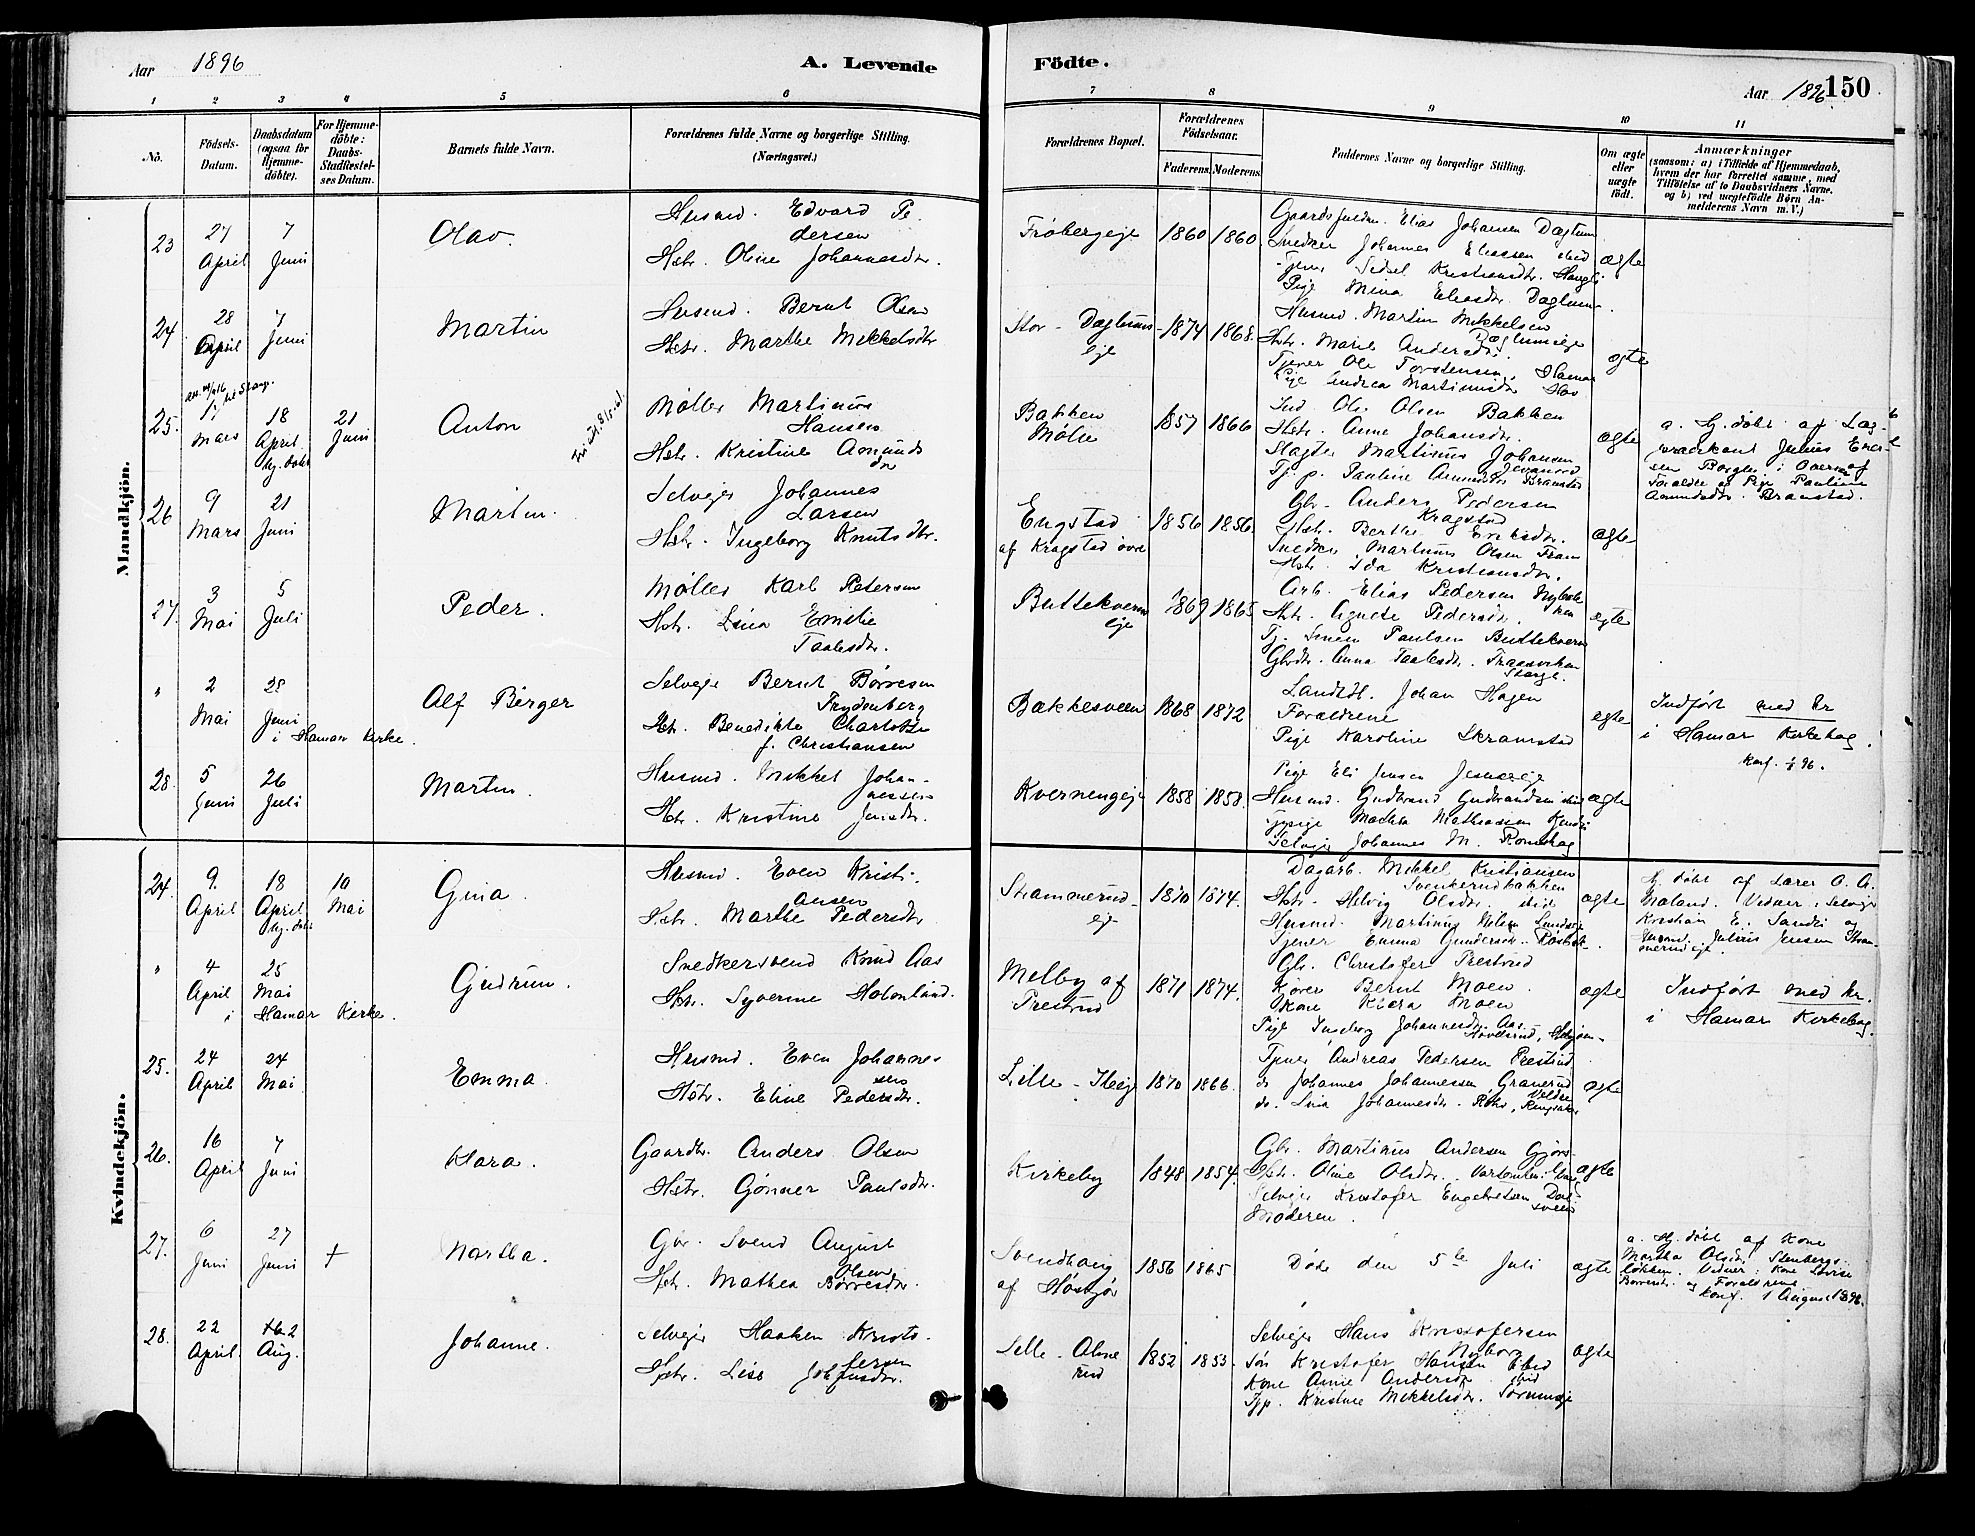 Aar 1896
A. Levende
Födte.
Aar 1896
150
1 2 3 4 5 6 7 8 9 10 11
No.
Födsels-
Datum.
Daabsdatum
(ogsaa for
Hjemme-
döbte).
For Hjemme-
döbte:
Daabs-
Stadfæstel-
ses Datum.
Barnets fulde Navn.
Forældrenes fulde Navne og borgerlige Stilling.
(Næringsvei.)
Forældrenes Bopæl.
Forældrenes
Födselsaar.
Faderens.
Moderens.
Faddernes Navne og borgerlige Stilling.
Om ægte
eller
uægte
födt.
Anmærkninger
(saasom: a) i Tilfælde af Hjemmedaab,
hvem der har forrettet samme, med
Tilföielse af to Daabsvidners Navne,
og b) ved uægtefödte Börn An-
melderens Navn m. V.)
Mandkjön.
23
27 April
7 Juni
Olav.
Husmd. Edvard Pe
dersen
Hstr. Oline Johannesdr.
Frøbergeje
1860
1860.
Elias Johansen Dæglum
Snedker Johannes Eliassen ibid
Sidsel Kristiansdr.
Pige Mina Eliasdr. Daglum
ægte
24
28 April
7 Juni
Martin
Husmd. Bernt Olsen
Hstr. Marthe Mikkelsdr
Stor-Dæglums-
eje
1874
1868.
Husmd. Martin Mikkelsen
Dæglumseje
Hstr. Marie Andersdr.
Tjener Ole Torstensen, Hamar
Pige Andrea Martinusdr
ægte
25.
Mars
18 April
hj. døbt
21 Juni
Anton
Møller Martinus
Hansen
Hstr. Kristine Amunds
dr
Bakken
Mølle
1857
1866
Ind. Ole Olsen Bakken
Hstr. Anne Johansdr.
Slagter Martinus Johansen
Tj. p. Pauline Amundsdr Bramstad
ægte
a. Hj. døbt af Læg-
prædikant Julius Ener-
sen Borgli, i Overvær af
Forældre og Pige Pauline
Amundsdr. Bramstad.
26
9 Mars
21 Juni
Martin.
Selvejer Johannes
Larsen
Hstr. Ingeborg Knutsdtr.
Engstad
af Kragstad øvre
1856
1856.
Gbr. Anders Pedersen
Kragstad
Hstr. Berthe Eriksdr.
Snedker Martinus Olsen
Hstr. Ida Kristiansdr.
ægte
27.
3 Mai
5 Juli
Peder.
Møller Karl Petersen
Hstr. Lina Emilie
Taalesdr.
Buttekvern
eje
1869
1865
Arb. Elias Pedersen
Hstr. Agnete Pedersdr.
Tj. Simen Paulsen Buttekvern
Gbrdr. Anna Taalesdr.
Stange.
ægte
"
2 Mai
28 Juni
i Hamar Kirke.
Alf Birger
Selvejer Bernt Børresen
Frydenberg
Hstr. Benedikte Charlotte
f. Christiansen
Bækkesveen
1868
1872
Landhdl. Johan Hagen
Forældrene
Pige Karoline Skramstad
ægte
Indført med Nr
i Hamar Kirkebog.
28.
5 Juni
26 Juli
Martin.
Husmd. Mikkel Johan-
nessen
Hstr. Kristine Jensdr.
Kvernengeje
1858
1858.
Pige Eli Jensen
Husmd. Gudbrand Gudbrandsen ibid
Mathea Mathiasen
Selvejer Johannes M. Romshag
ægte
Kvindekjön.
24.
9. April
18 April
hj. døbt
10 Mai
Gina.
Husmd. Even Kristi-
ansen
Hstr. Marthe Pedersdr
Strammerud-
eje
1870
1874.
Dagarb. Mikkel Kristiansen
Svenkerudbakken
Hstr. Helvig Olsdr. ibid
Husmd. Martinus
Tjener Emma Gundersdr.
ægte
Hj. døbt af Lærer O. A.
Moland. Vidner: Selvejer
Kristian E. Sandli og
Husmd. Julius Jensen Stram-
merudeje.
"
4 April
25 Mai
i Hamar Kirke.
Gudrun.
Snedkersvend Knud Aas
Hstr. Syverine
Melby af
Prestrud
1871
1874.
Gbr. Christofer Prestrud
Kører Bernt Moen
Kone Klara Moen
Pige Ingeborg Johannesdr. Aas
ægte
Indført med Nr.
i Hamar Kirkebog.
25.
24 April
24 Mai
Emma.
Husmd. Even Johannes
sen
Hstr. Eline Pedersdr.
Lille-
1870
1866.
Tjener Andreas Pedersen Prestrud
do Johannes Johannessen Granerud
do. Lina Johannesdr.
ægte
26.
16 April
7 Juni
Klara.
Gaardbr. Anders Olsen
Hstr. Gønner Paulsdr.
Kirkeby
1848
1854.
Gbr. Martinus Andersen
Hstr. Oline Olsdr.
Selvejer Kristofer Engebretsen
Moderen.
ægte
27.
6 Juni
27 Juni
†
Martha.
Gbr. Svend August
Olsen
Hstr. Mathea Børresdr.
Svendhaug
af Høsbjør
1856
1865
Døde den 5te Juli
ægte
a. Hj. døbt af Kone
Martha Olsdr. Stenbergs
løkken. Vidner: Kone Lovise
Børresdr. og Forældrene
Konf. 1 August 1896.
28.
22 April.
2 Aug.
Johanne.
Selvejer Haaken Kristo-
fersen
Hstr. Lise
Lille-
rud
1852
1853.
Selvejer Hans Kristofersen
Nyborg
Søn Kristofer Hansen ibid
Kone Anne Andersdr. ibid
Tjp. Kristine Mikkelsdr.
ægte